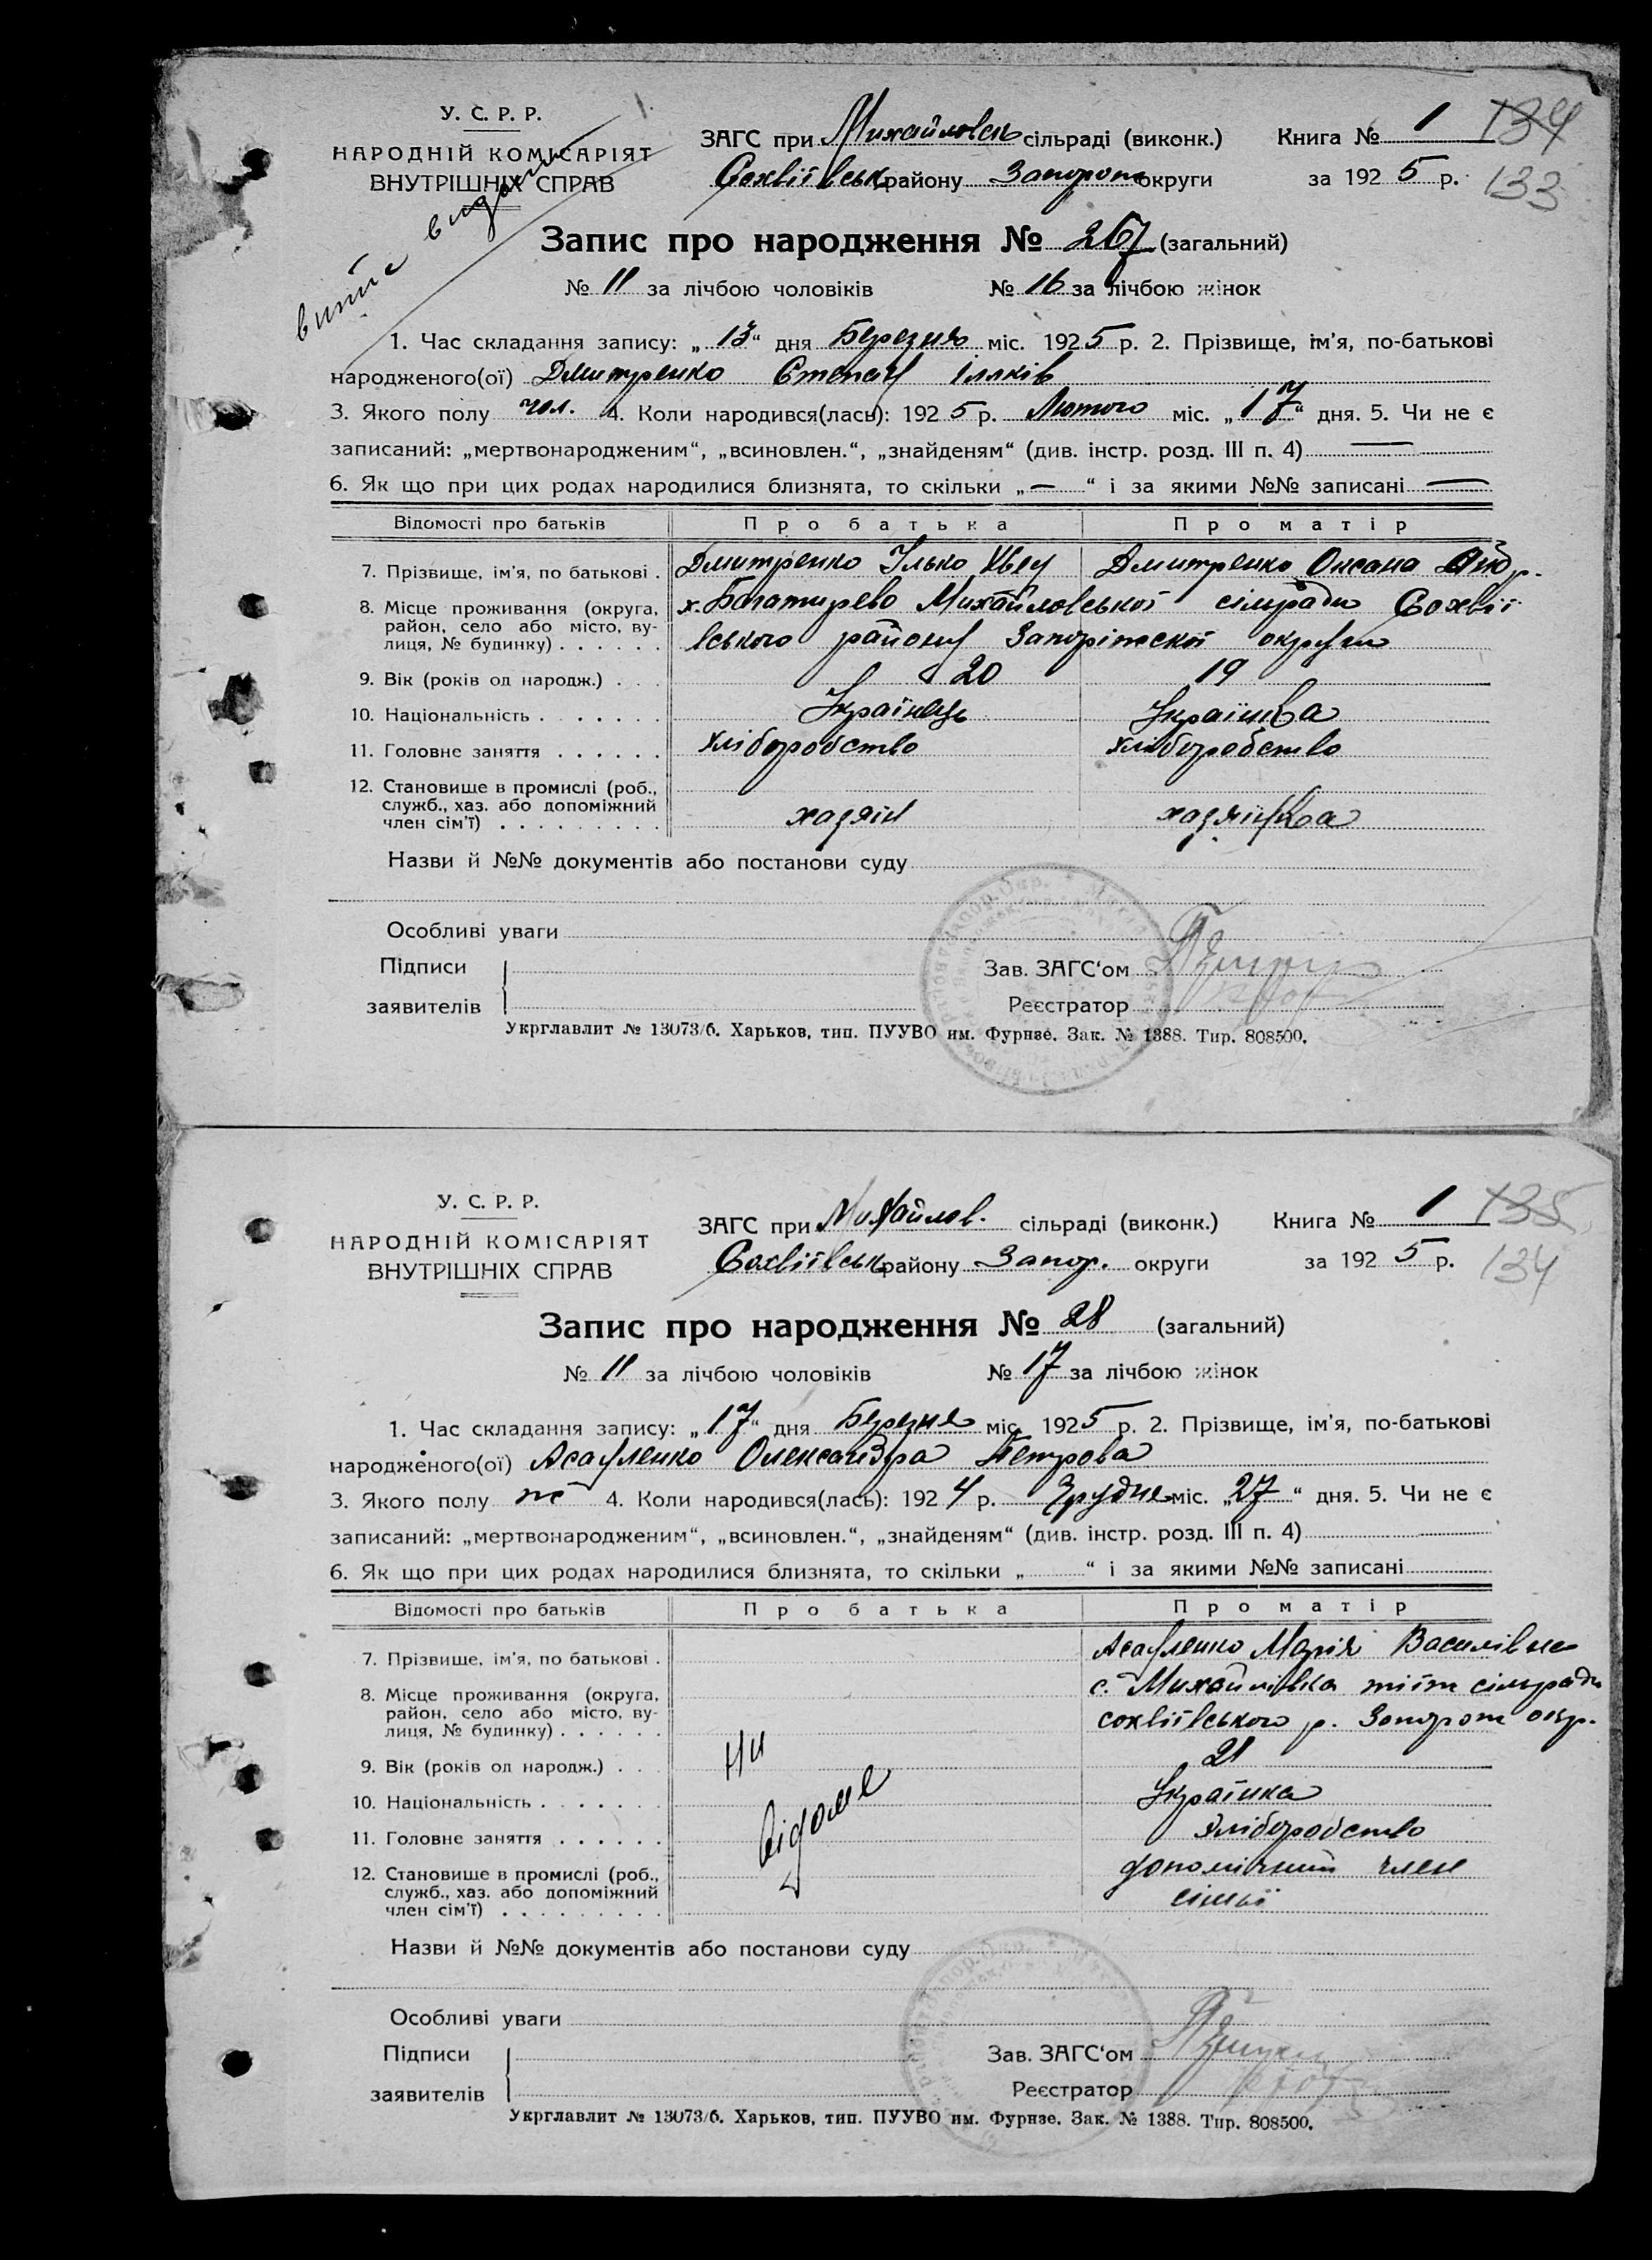 У. С. Р. Р.
НАРОДНІЙ КОМІСАРІЯТ
ВНУТРІШНІХ СПРАВ
ЗАГС при Михайловсь сільраді (виконк.) Книга № 1 134
Сохвіївськ району Запорож округи за 192 5 р. 133
витяг видано
Запис про народження № 267 (загальний)
№ 11 за лічбою чоловіків № 16 за лічбою жінок
1. Час складання запису: „ 13 “ дня Березня міс. 192 5 р. 2. Прізвище, ім'я, по-батькові
народженого(ої) Дмитренко Степан Ілляків
3. Якого полу чол. 4. Коли народився(лась): 192 5 р. Лютого міс. „ 17 “ дня. 5. Чи не є
записаний: „мертвонародженим“, „всиновлен.“, „знайденям“ (див. інстр. розд. III п. 4) —
6. Як що при цих родах народилися близнята, то скільки „ — “ і за якими №№ записані —
Відомості про батьків Про батька Про матір
7. Прізвище, ім'я, по батькові . Дмитренко Ілько Дмитренко Оксана Андр.
8. Місце проживання (округа, х. Богатирево Михайловської сільради Сохвії
район, село або місто, ву- вського району Запоріжскої округи
лиця, № будинку) . . . . . .
9. Вік (років од народж.) . . . 20 19
10. Національність . . . . . . . Українець Українка
11. Головне заняття . . . . . . Хліборобство хліборобство
12. Становище в промислі (роб.,
служб., хаз. або допоміжний
член сім'ї) . . . . . . . . . хазяїн хазяїнка
Назви й №№ документів або постанови суду
Особливі уваги
Підписи
заявителів
Зав. ЗАГС'ом
Реєстратор
Укрглавлит № 13073/б. Харьков, тип. ПУУВО им. Фурнзе. Зак. № 1388. Тир. 808500.
У. С. Р. Р.
НАРОДНІЙ КОМІСАРІЯТ
ВНУТРІШНІХ СПРАВ
ЗАГС при Михайлов. сільраді (виконк.) Книга № 1 135
Сохвіївськ району Запор. округи за 192 5 р. 134
Запис про народження № 28 (загальний)
№ 11 за лічбою чоловіків № 17 за лічбою жінок
1. Час складання запису: „ 17 “ дня Березня міс. 192 5 р. 2. Прізвище, ім'я, по-батькові
народженого(ої) Асауленко Олександра Петрова
3. Якого полу ж 4. Коли народився(лась): 192 4 р. Грудня міс. „ 27 “ дня. 5. Чи не є
записаний: „мертвонародженим“, „всиновлен.“, „знайденям“ (див. інстр. розд. III п. 4)
6. Як що при цих родах народилися близнята, то скільки „ “ і за якими №№ записані
Відомості про батьків Про батька Про матір
7. Прізвище, ім'я, по батькові . Асауленко Марія Василівна
8. Місце проживання (округа, с. Михайлівка тіїж сільради
район, село або місто, ву- сохвіївського р. Запорож окр.
лиця, № будинку) . . . . . .
9. Вік (років од народж.) . . . 21
10. Національність . . . . . . . Українка
11. Головне заняття . . . . . . Хліборобство
12. Становище в промислі (роб., допоміжний член
служб., хаз. або допоміжний сімьї
член сім'ї) . . . . . . . . .
Ни
відоме
Назви й №№ документів або постанови суду
Особливі уваги
Підписи
заявителів
Зав. ЗАГС'ом
Реєстратор
Укрглавлит № 13073/б. Харьков, тип. ПУУВО им. Фурнзе. Зак. № 1388. Тир. 808500.